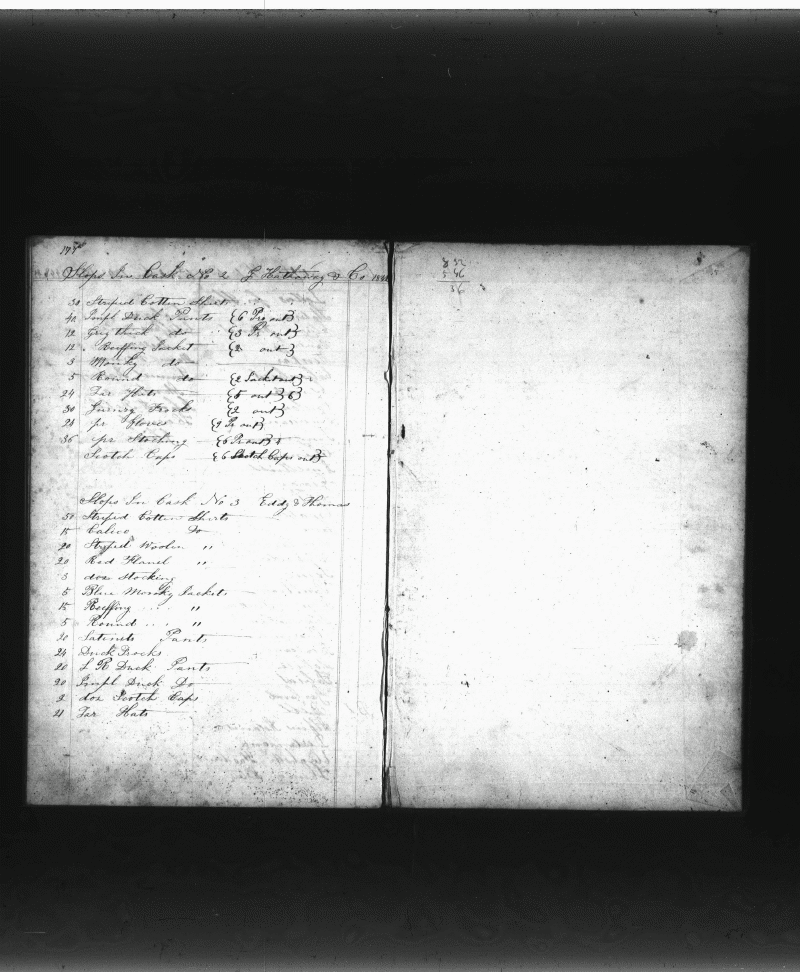 Slops In Cask No 2 J Hathaway & Co
30 Striped Cotton Shirts
40 Impl Duck Pants {6 Prs out}
12 do {3 Pr out}
12 Reeffing Jacket {2 out}
3 Monky do
5 Round do {2 Jacket out}
24 Tar Hats {5 out} 6}
30 Frocks {2 out}
24 pr Gloves {2 Pr out}
36 pr Stocking {6 Pr out}
Scotch Caps {6 Scotch Caps out}
Slops In Cask No 3 Eddy & Thomas
50 Striped Cotton Shirts
15 Calico Do
20 Striped Woolen "
20 Red Flanel "
3 doz Stocking
5 Blue Monky Jackets
15 Reeffing "
5 Round "
30 Satinets Pants
24 Duck Frocks
20 L R Duck Pants
20 Impl Duck Do
2 doz Scotch Caps
21 Tar Hats
8 32
5 46
36